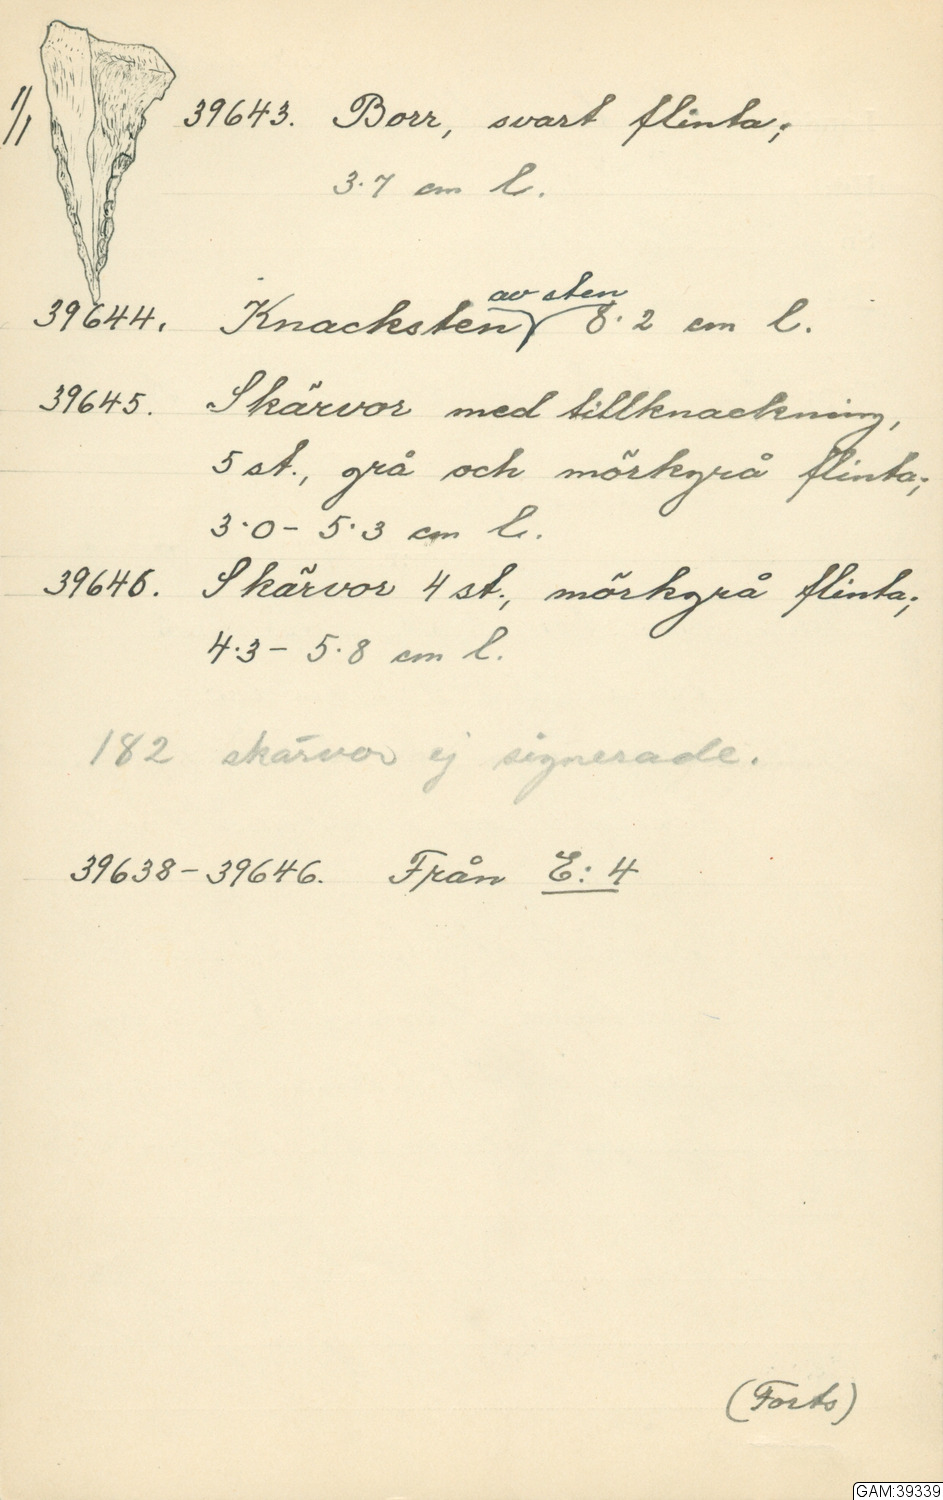 1/1
39643. Borr, svart flinta;
3.7 cm l.
av sten
39644. Knacksten 8.2 cm l.
39645. Skärvor med tillknackning,
5 st., grå och mörkgrå flinta;
3.0 - 5.3 cm l.
39646. Skärvor 4 st., mörkgrå flinta;
4.3 - 5.8 cm l.
182 skärvor ej signerade.
39638 - 39646. Från E: 4
(Forts)
GAM:39339